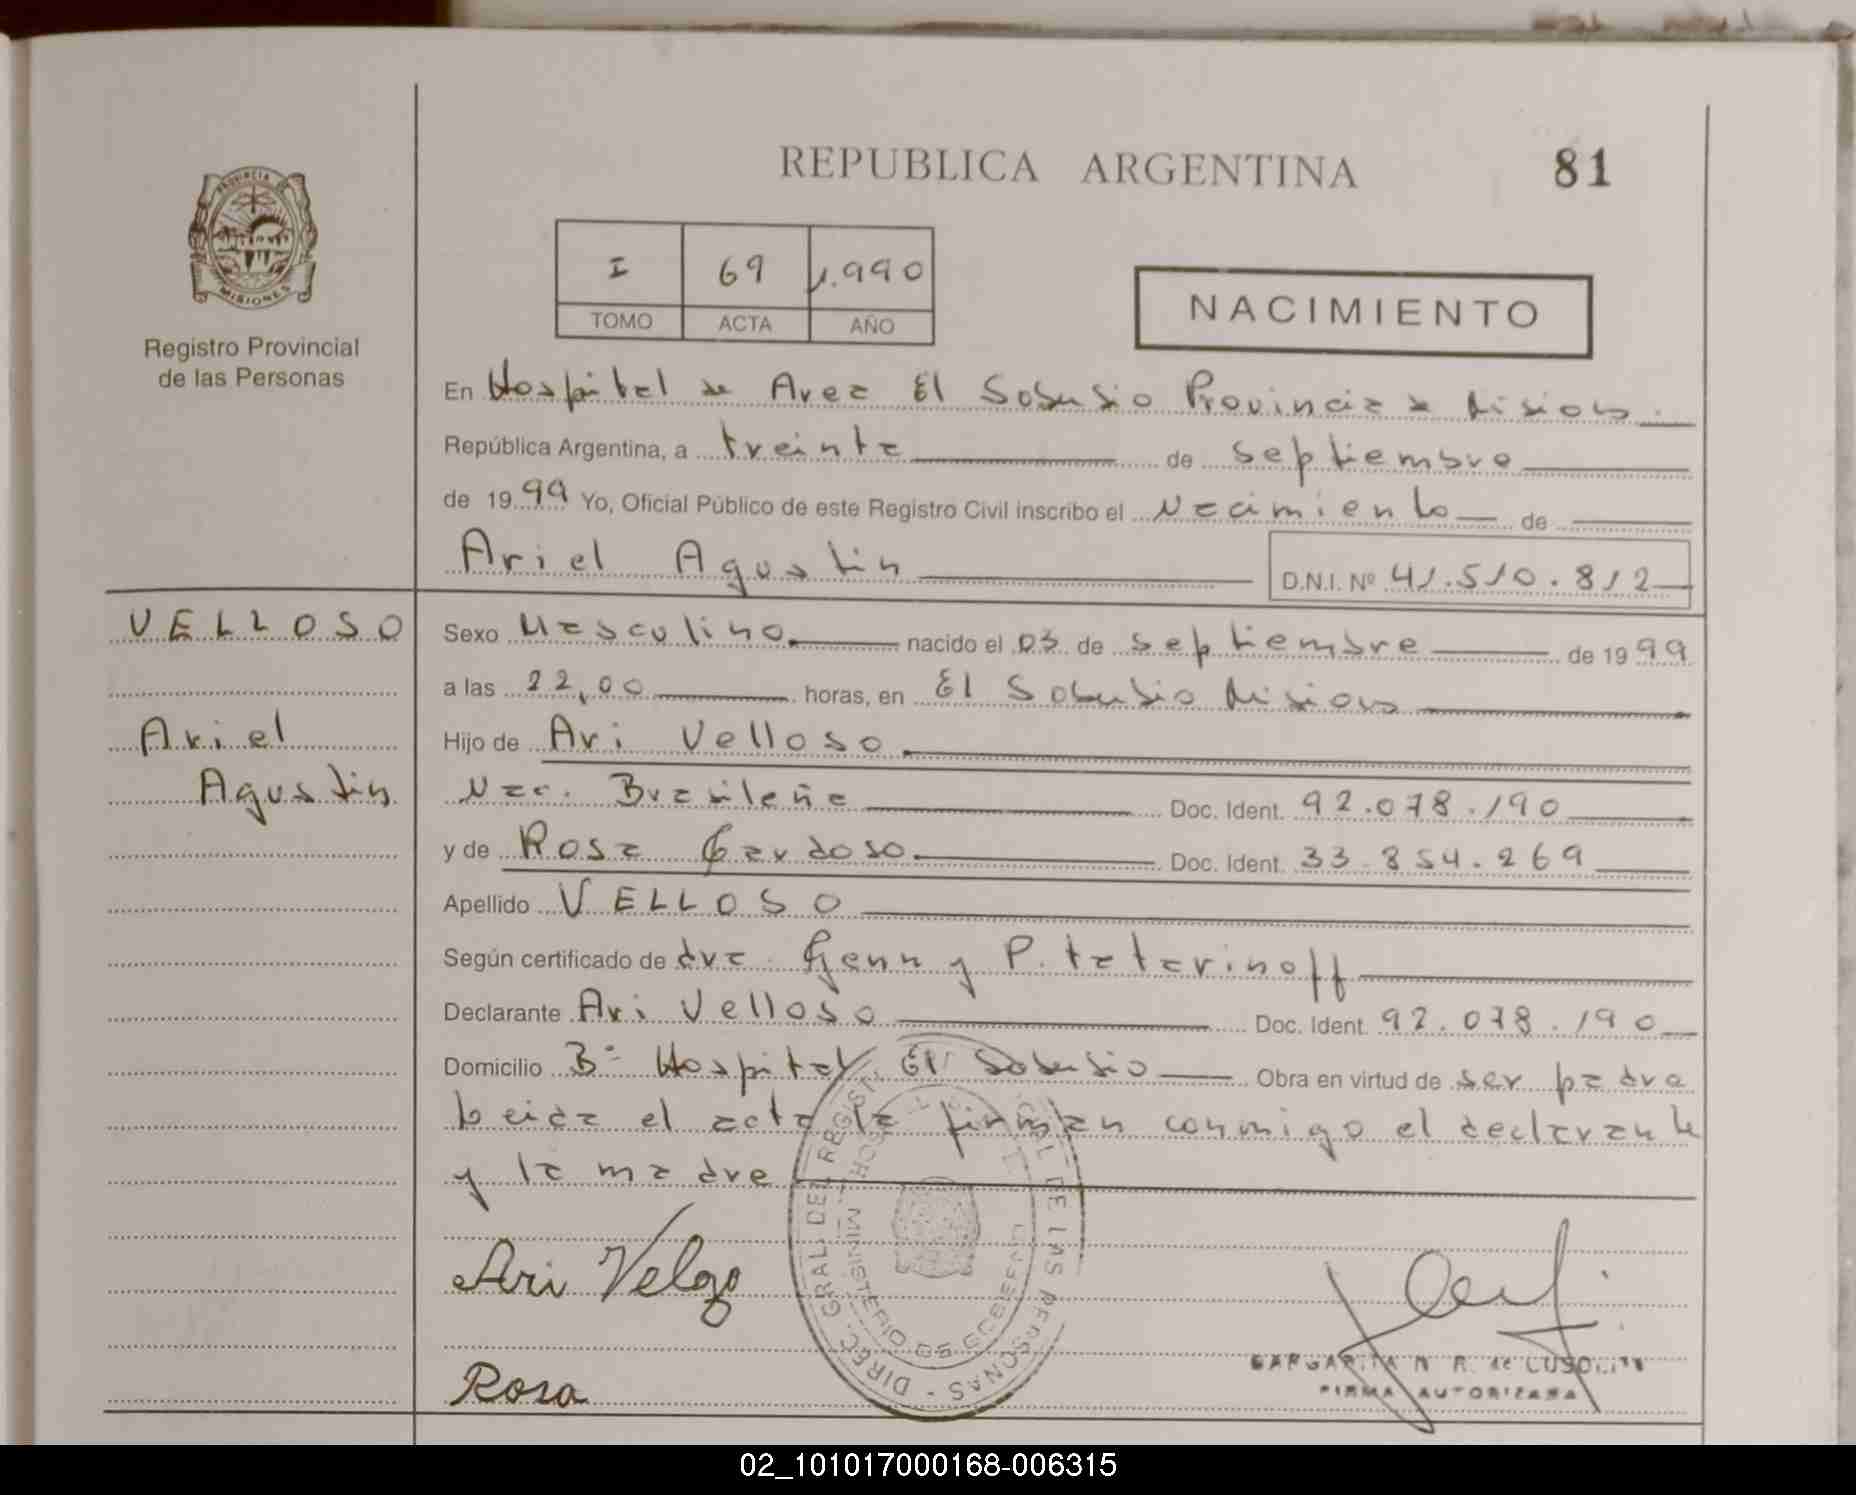 REPUBLICA ARGENTINA
81
PROVINCIA DE
MISIONES
Registro Provincial
de las Personas
I 69 1.990
TOMO ACTA AÑO
NACIMIENTO
En Hospital de Area El Soberbio Provincia de Misiones
República Argentina, a treinta de septiembre
de 1999 Yo, Oficial Público de este Registro Civil inscribo el Nacimiento de
Ariel Agustin D.N.I. Nº 41.510.812
VELLOSO
Ariel
Agustin
Sexo Masculino nacido el 03 de septiembre de 1999
a las 22,00 horas, en El Soberbio Misiones
Hijo de Ari Velloso
Nac. Brasileña Doc. Ident. 92.078.190
y de Rosa Cardoso Doc. Ident. 33.854.269
Apellido VELLOSO
Según certificado de dra. Genny P. tatarinoff
Declarante Ari Velloso Doc. Ident. 92.078.190
Domicilio Bº Hospital El Soberbio Obra en virtud de ser padre
Leida el acta la firman conmigo el declarante
y la madre
Ari
Rosa
DIREC. GRAL. DEL REGISTRO DE LAS PERSONAS
MINISTERIO DE GOBIERNO
MARGARITA N. R. de
FIRMA AUTORIZADA
02_101017000168-006315